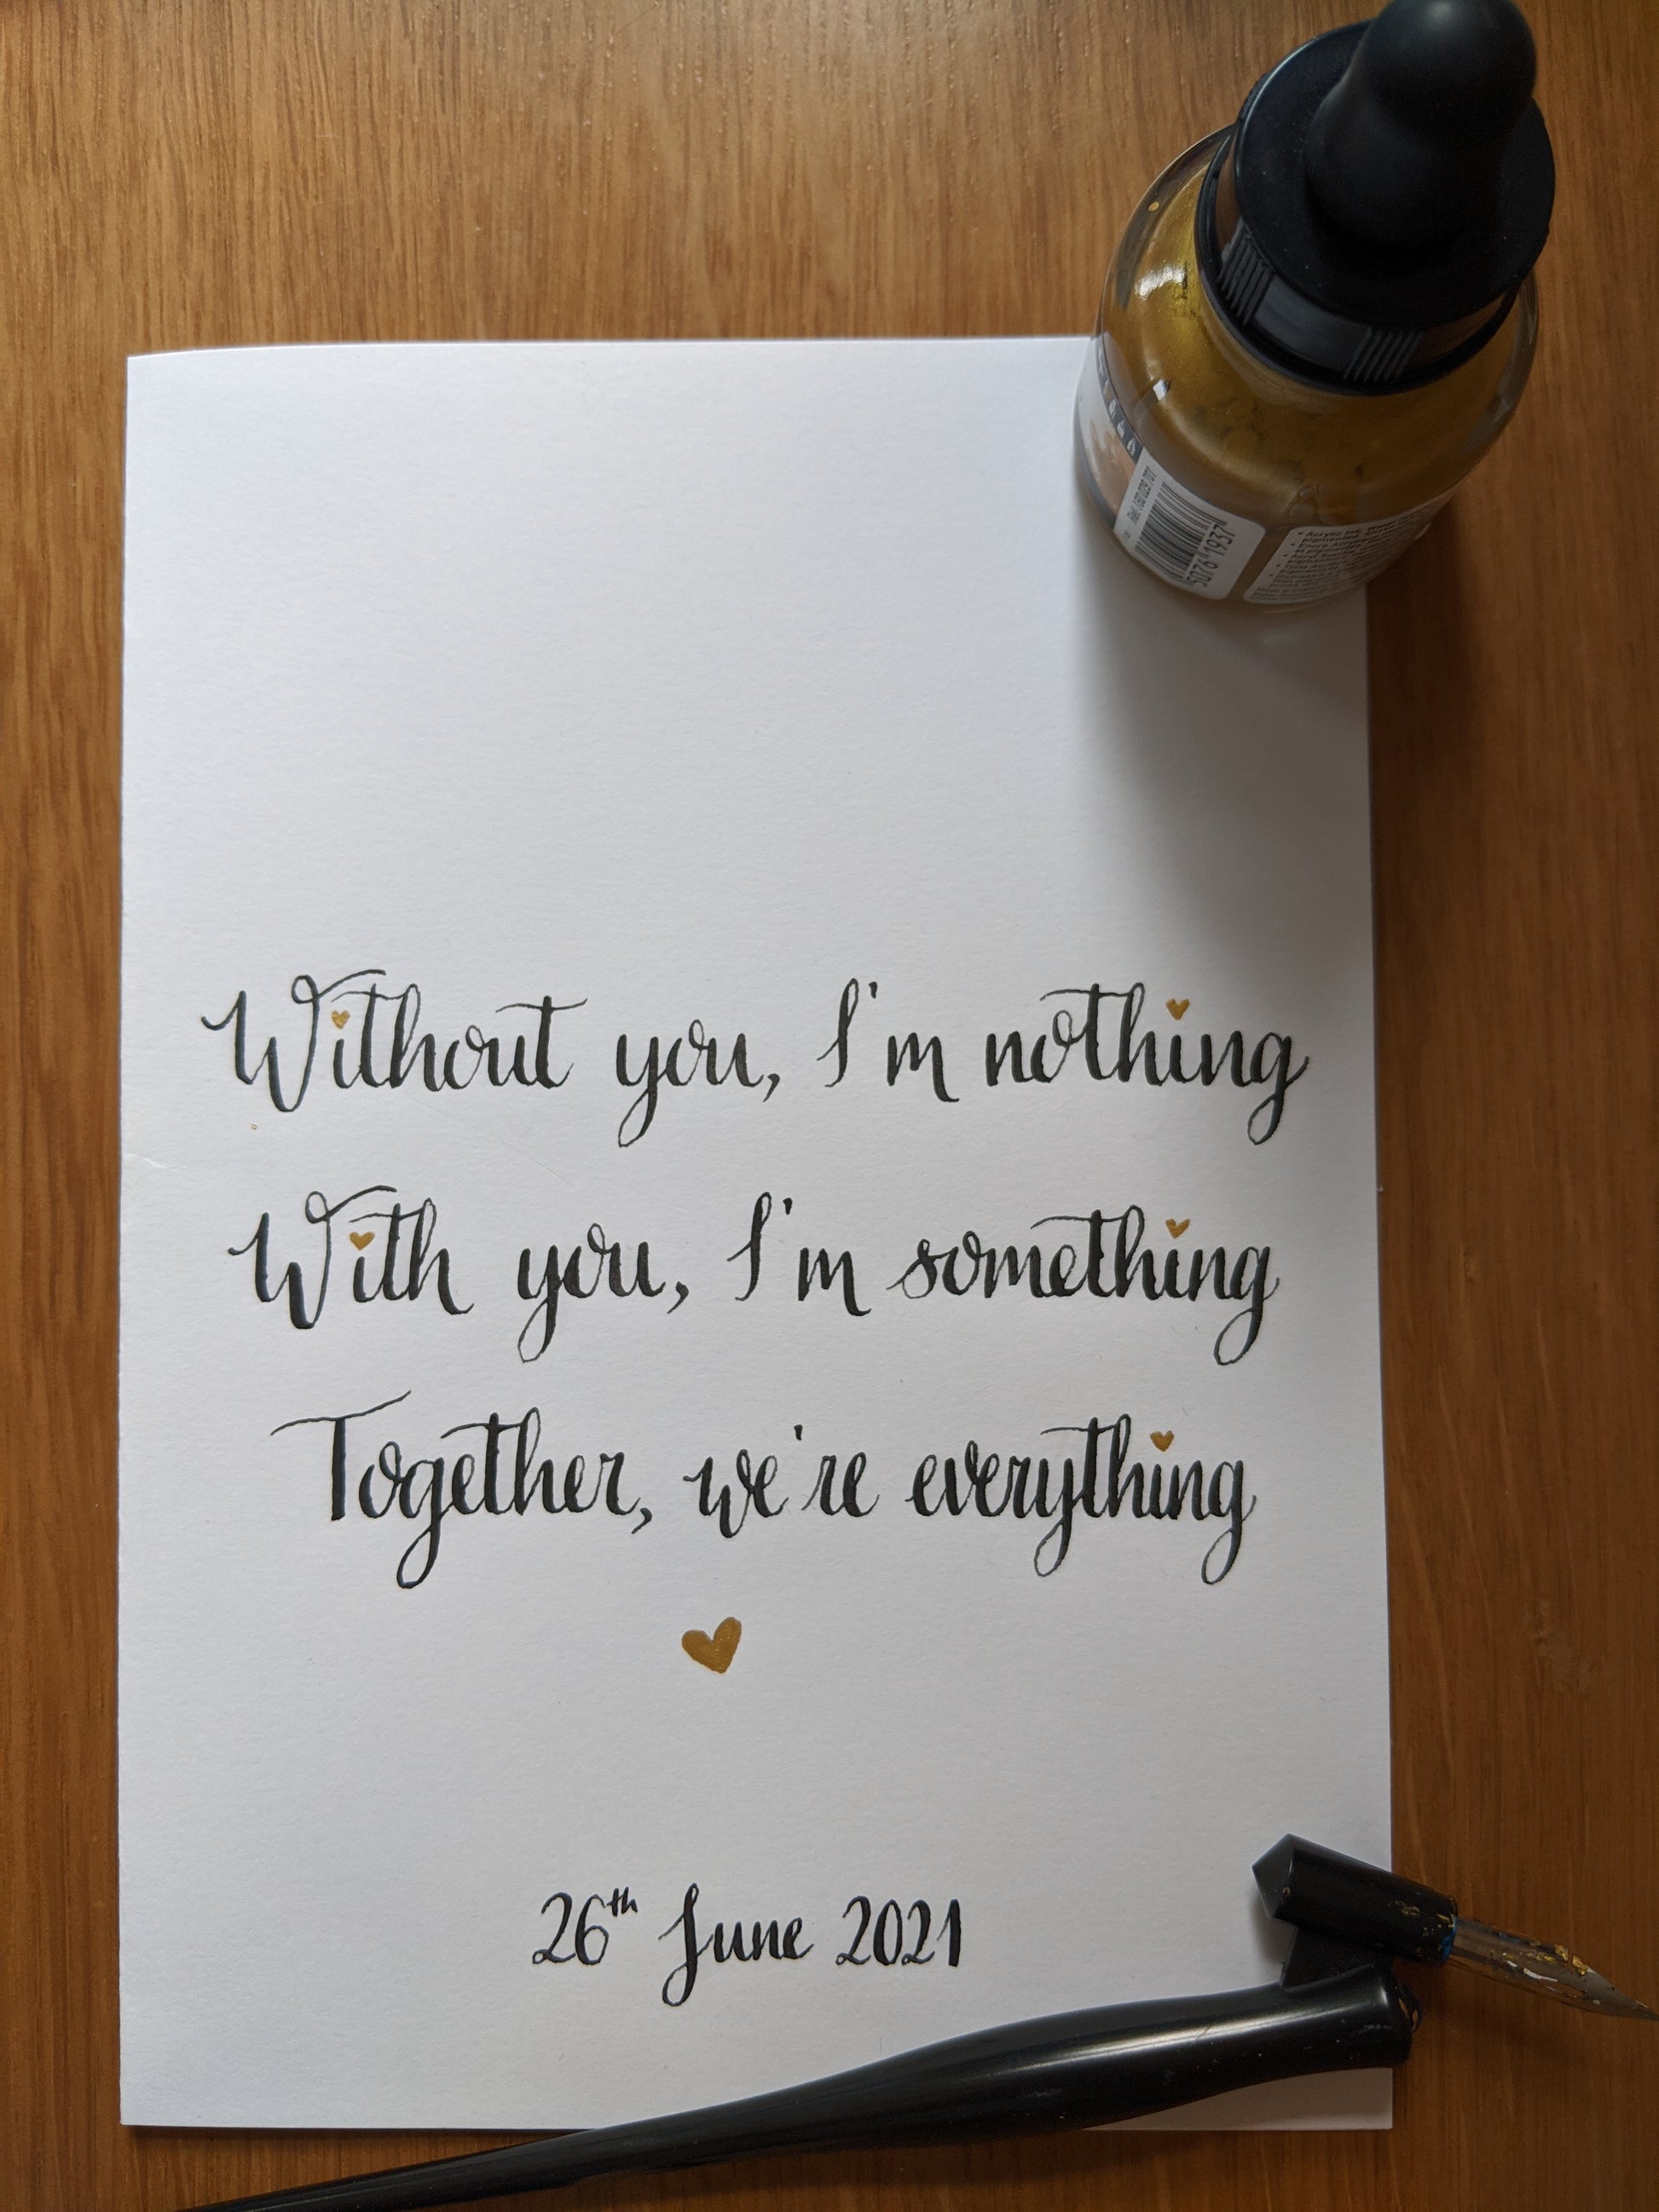 Without you, I'm nothing
With you, I'm something
Together, we're everything
26th June 2021
5076 1937